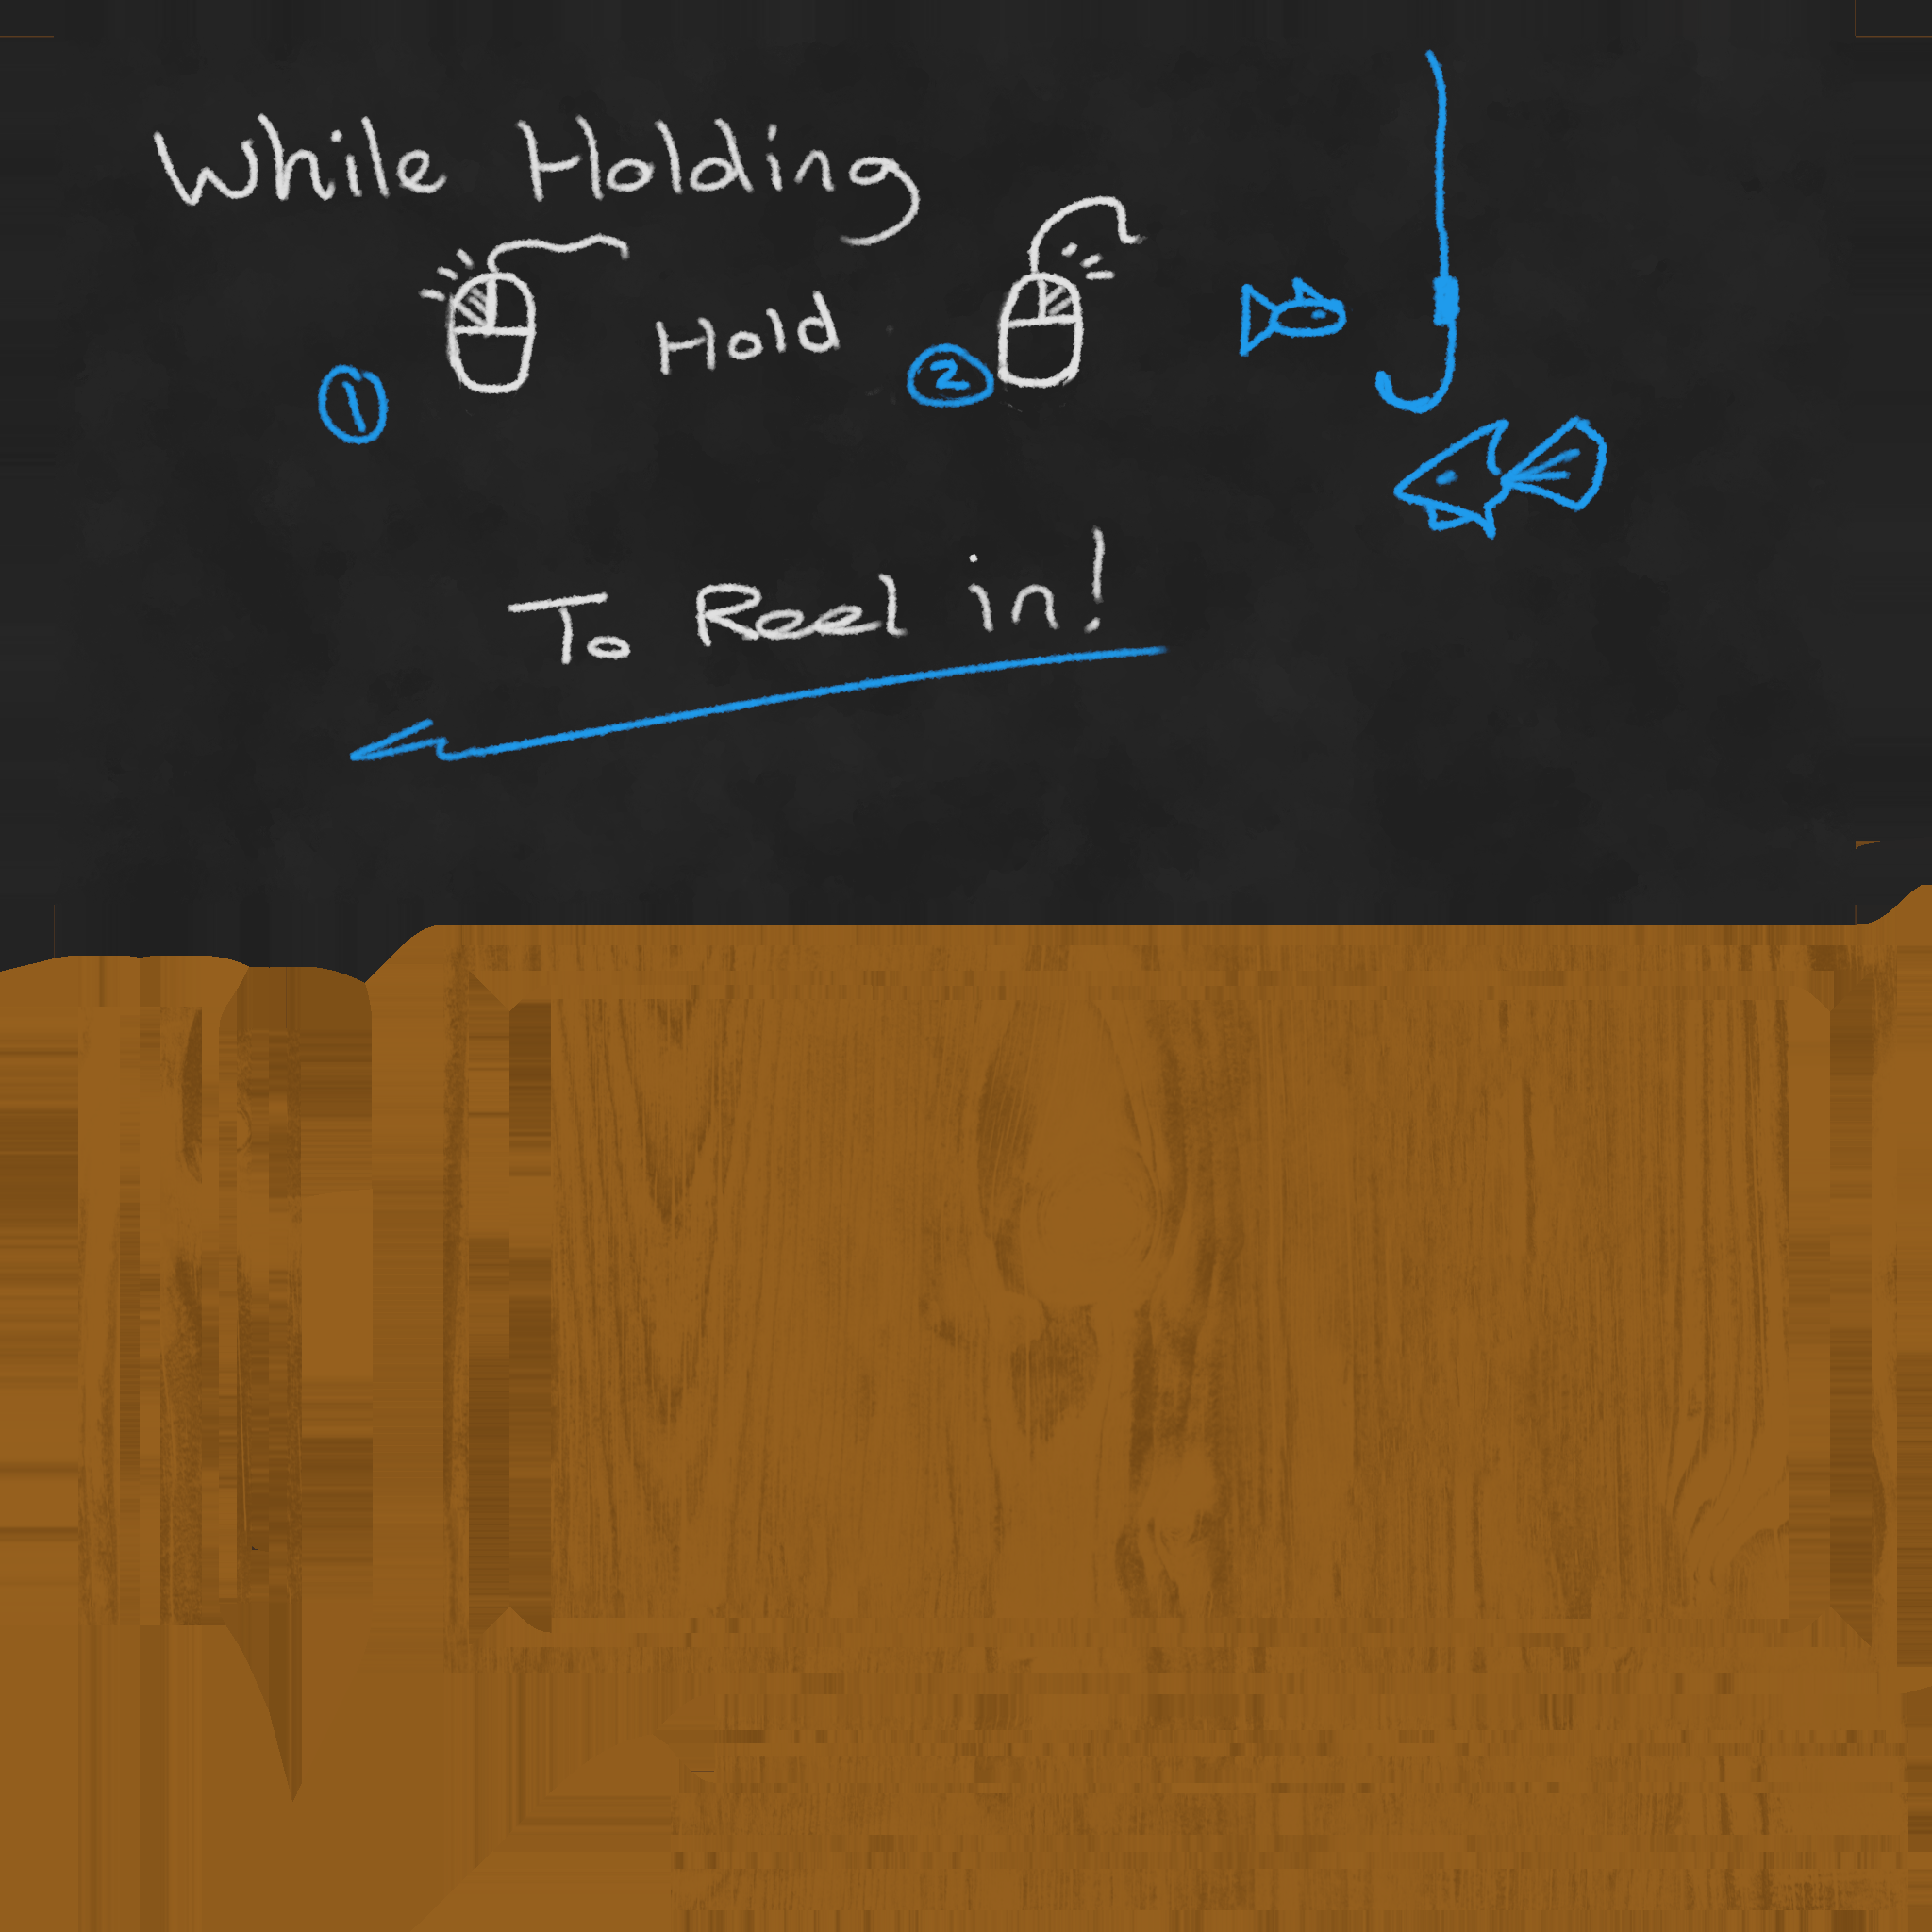 While Holding
1 Hold 2
To Reel in!